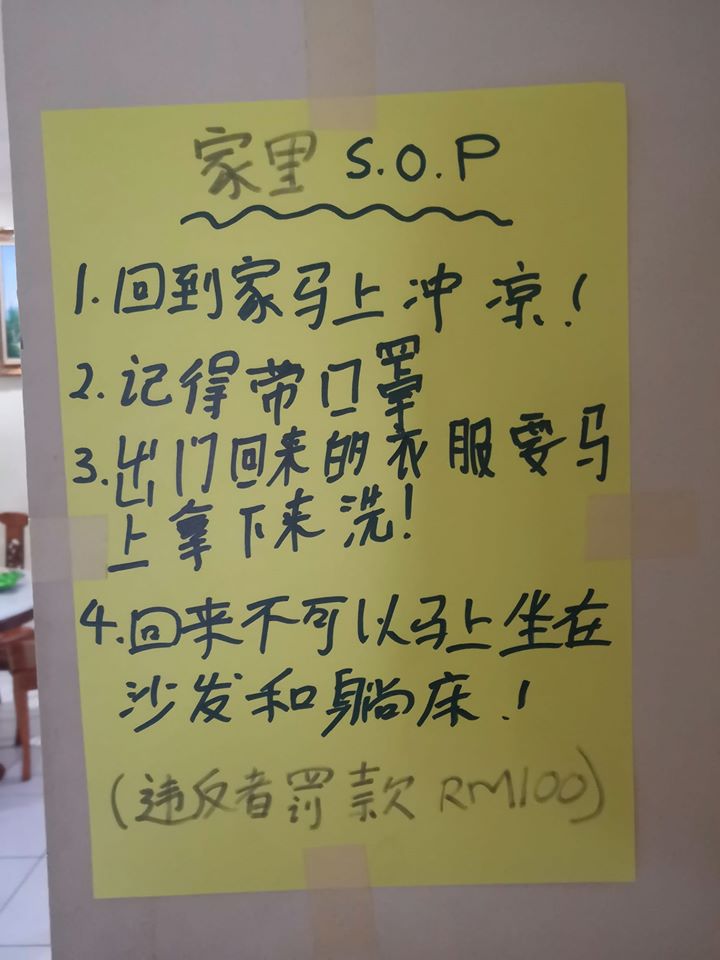 家里 S.O.P
1. 回到家马上冲凉!
2. 记得带口罩
3. 出门回来的衣服要马
上拿下来洗!
4. 回来不可以马上坐在
沙发和躺床!
(违反者罚款 RM100)